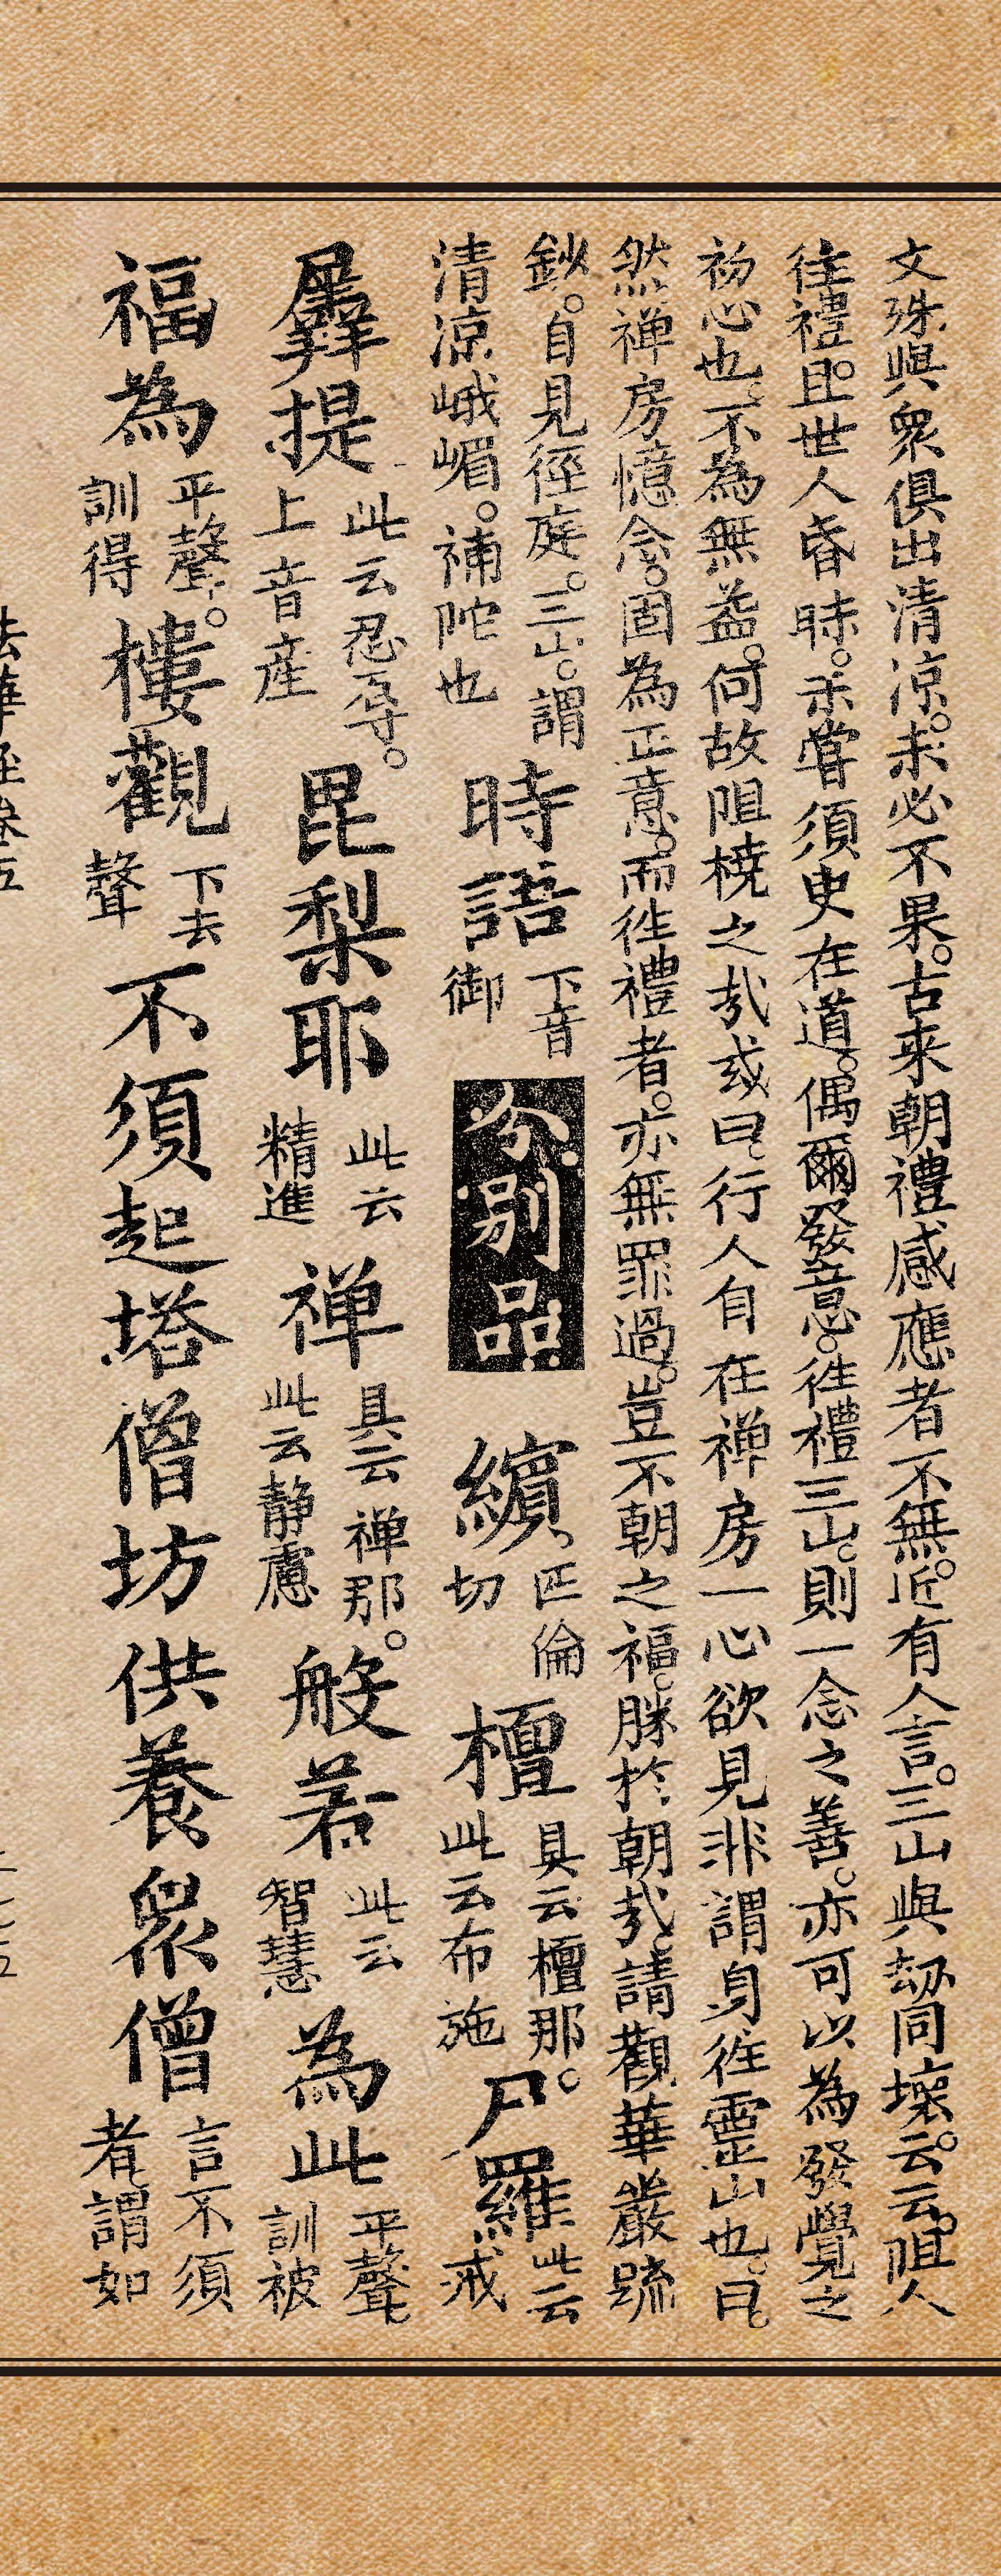 文殊與衆俱出清涼。未必不果。古来朝禮感應者不無。近有人言。三山與劫同壞。云云。阻人
往禮。且世人昏昧。未嘗須臾在道。偶爾發意。徃禮三山。則一念之善。亦可以為發覺之
初心也。不為無益。何故阻橈之哉。或曰。行人自在禅房一心欲見。非謂身徃靈山也。曰。
然禅房憶念。固為正意。而徃禮者。亦無罪過。豈不朝之福。勝於朝哉。請觀華嚴䟽
鈔。自見徑庭。三山。謂
清涼峨嵋。補陀也
時語
下音
御
分別品
繽
匹倫
切
檀
具云檀那。
此云布施
尸羅
此云
戒
羼提
此云忍辱。
上音産
毘梨耶
此云
精進
禅
具云禅那。
此云静慮
般若
此云
智慧
為此
平聲
訓被
福為
平聲。
訓得
樓觀
下去
聲
不須起塔僧坊供養衆僧
言不須
者。謂如